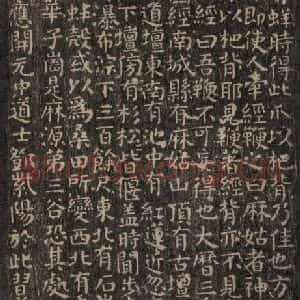 蛘時得此爪以杷背乃佳也
即使人牽經鞭之曰麻姑者神
以杷背耶見鞭著經背亦不見
經曰吾鞭不可妄得也大曆三
經南城縣有麻姑山頂有古壇
道壇東南有池中有紅蓮近忽
下壇傍有杉松皆偃蓋時聞步
瀑布淙下三百餘尺東北有石
蚌殼或以為桑田所變西北有
華子崗是麻源第三谷恐其處
應開元中道士鄧紫陽於此習